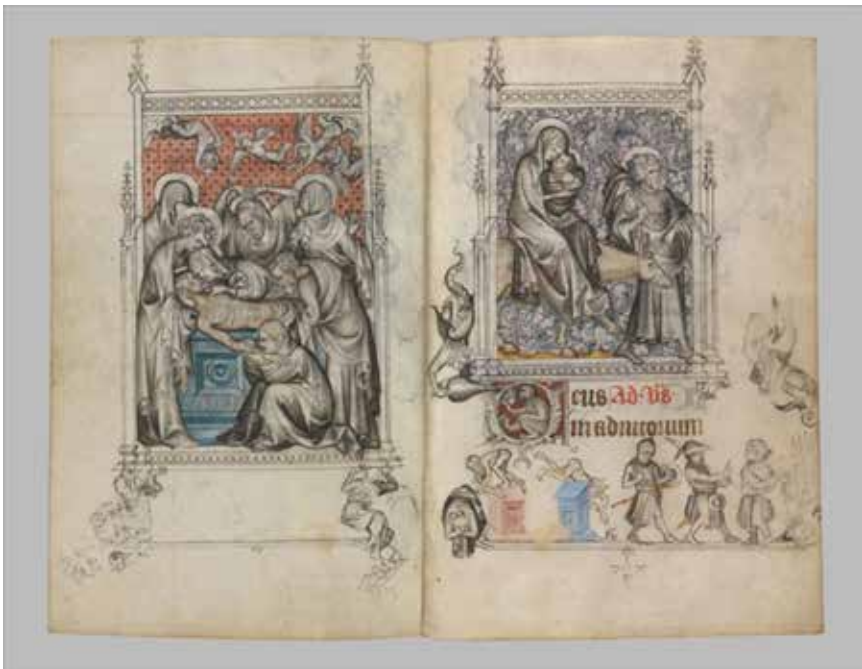 Deus Ad Vs
in adiutorium